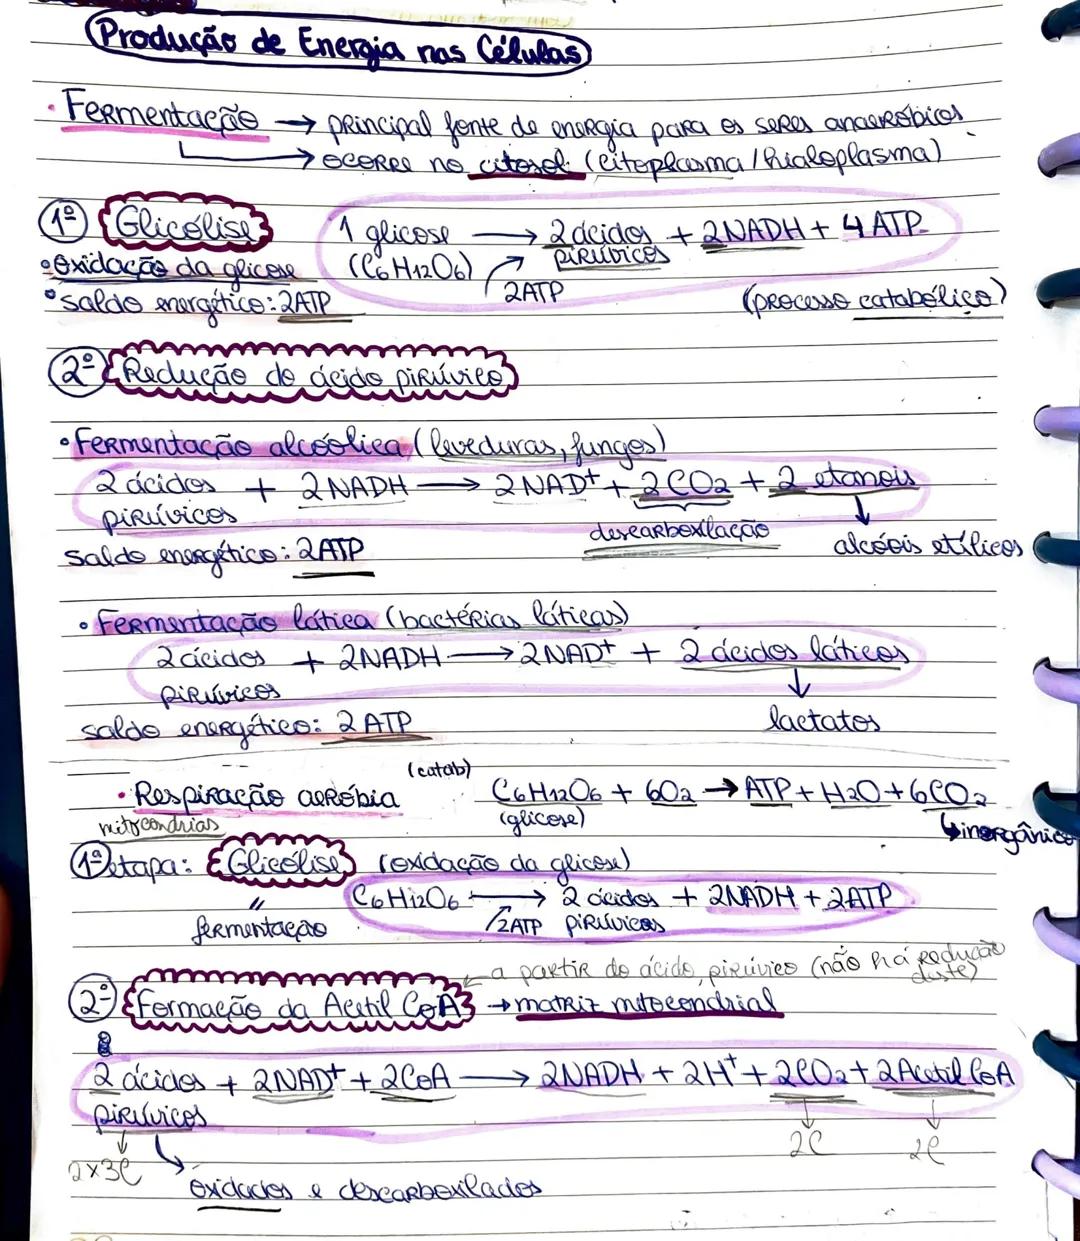 Produção de Energia nas Células
• Fermentação → principal fonte de energia para os seres anaeróbios
→ ocorre no citosol (citoplasma / hialoplasma)
1º Glicólise 1 glicose → 2 ácidos + 2NADH + 4 ATP
(C6H12O6) pirúvicos
• oxidação da glicose
2ATP
• saldo energético: 2ATP (processo catabólico)
2º Redução do ácido pirúvico
• Fermentação alcoólica (leveduras, fungos)
2 ácidos + 2NADH → 2NAD+ + 2CO2 + 2 etanois
pirúvicos
descarboxilação
saldo energético: 2ATP alcoóis etílicos
• Fermentação lática (bactérias láticas)
2 ácidos + 2NADH → 2NAD+ + 2 ácidos láticos
pirúvicos
saldo energético: 2 ATP lactatos
(catab)
• Respiração aeróbia C6H12O6 + 6O2 → ATP + H2O + 6CO2
mitocondrias (glicose) ↳ inorgânico
1ª etapa: Glicólise (oxidação da glicose)
C6H12O6 → 2 ácidos + 2NADH + 2ATP
" fermentação 2ATP pirúvicos
← a partir do ácido pirúvico (não há redução
deste)
2º Formação da Acetil CoA → matriz mitocondrial
2 ácidos + 2NAD+ + 2CoA → 2NADH + 2H+ + 2CO2 + 2Acetil CoA
pirúvicos
2C 2C
2x3C
oxidados e descarboxilados